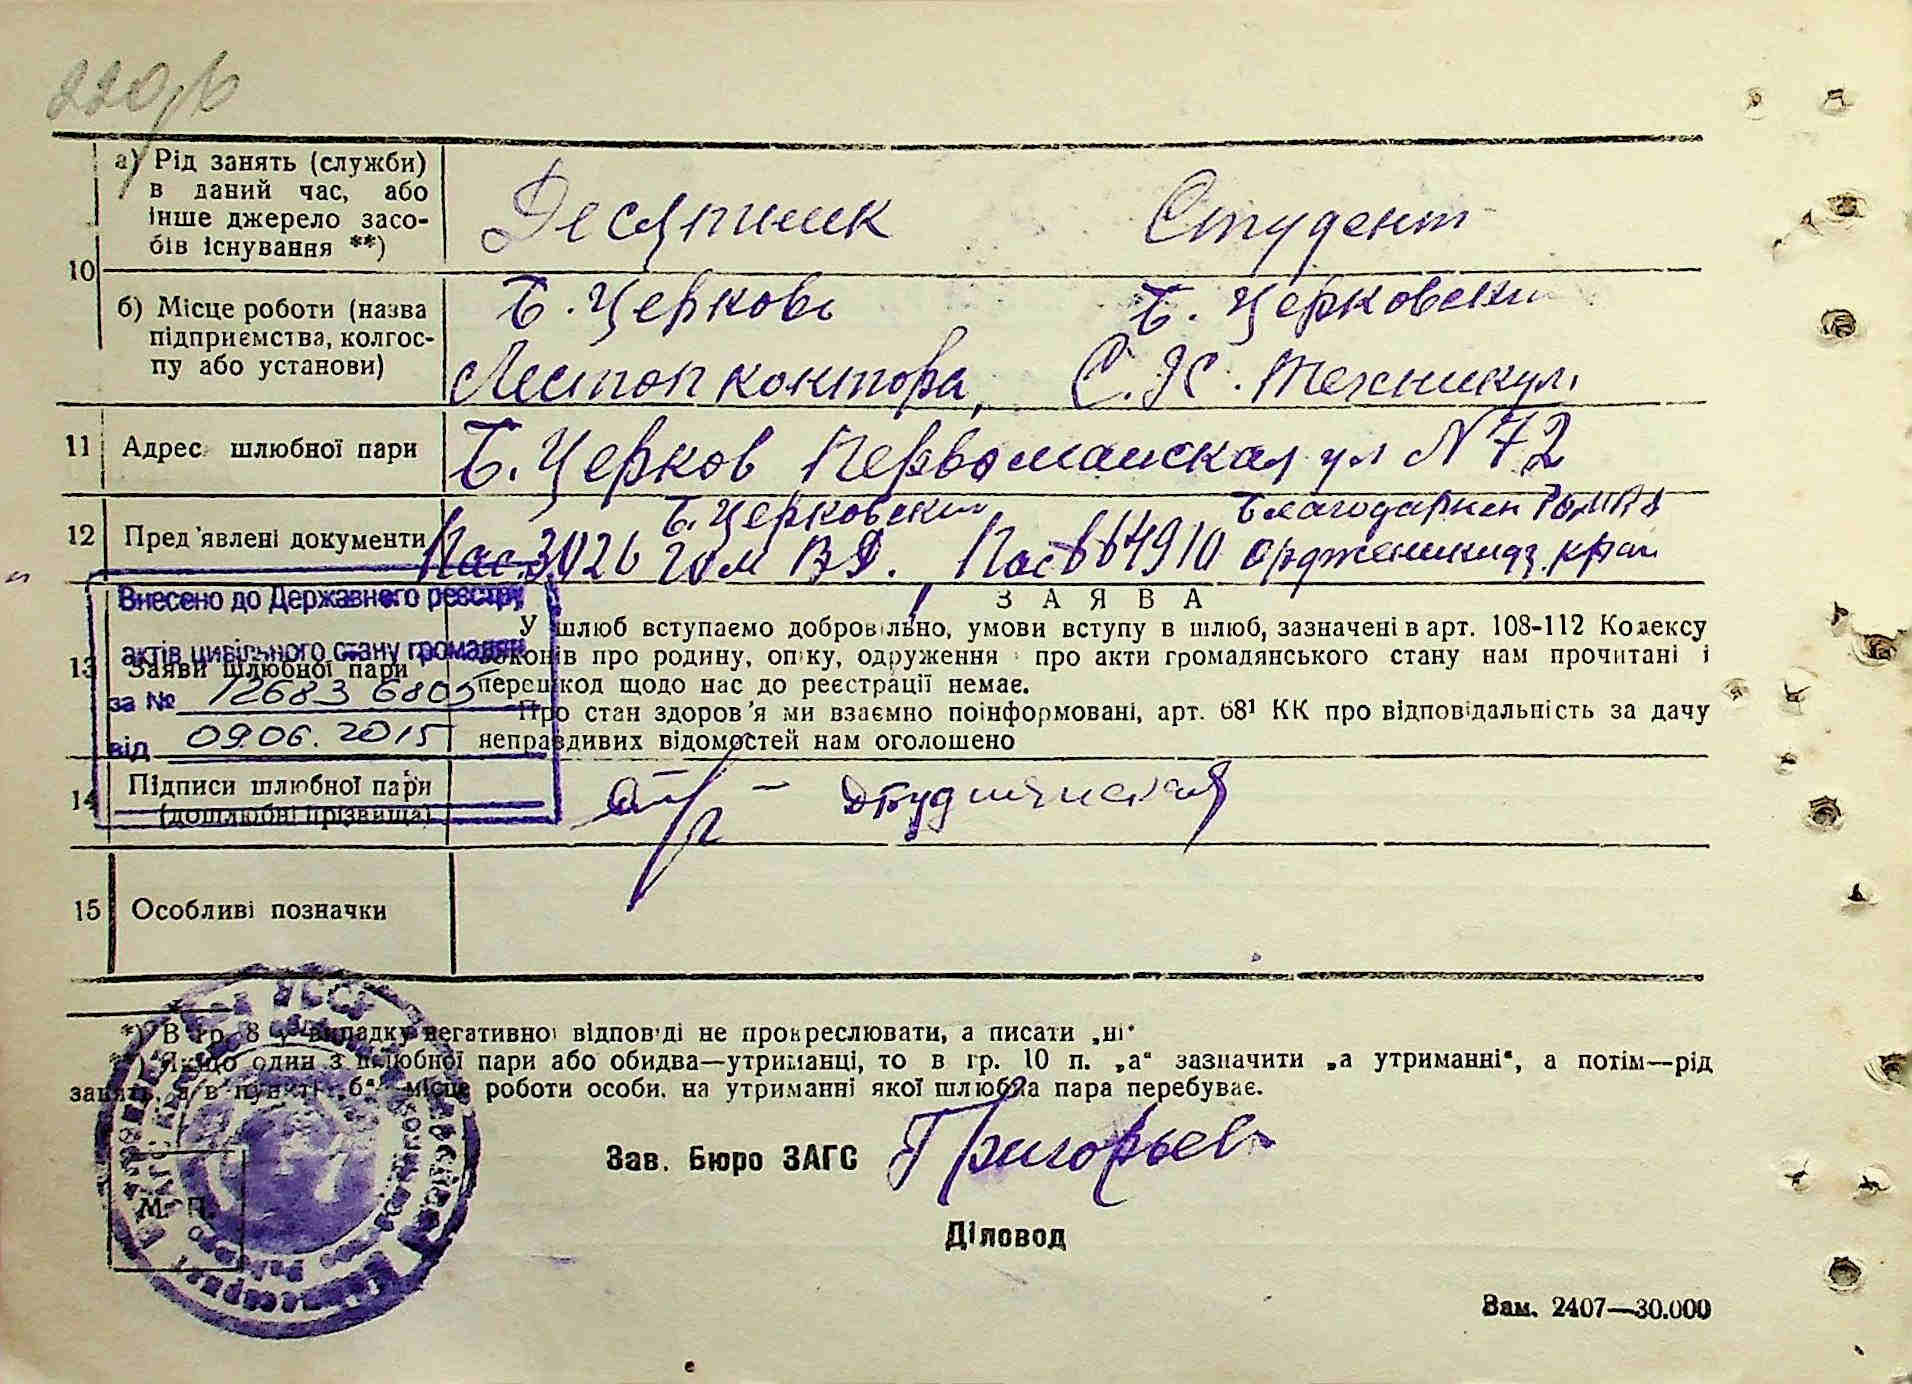 220,
10
а) Рід занять (служби)
в даний час, або
інше джерело засо-
бів існування **)
Десятник Студент
б) Місце роботи (назва
підприємства, колгос-
пу або установи)
Б. Церковь Б. Церковски
контора, С. Х. Техникум
11 Адрес шлюбної пари
Б. Церков Первомаиская ул N 72
12 Пред'явлені документи
Б. Церковски
Пас. 3026 ГОМ ВД. Орджоникидз. краи
Внесено до Державного реєстру
актів цивільного стану громадян
за № 12683 6805
від 09.06.2015
13 Заяви шлюбної пари
ЗАЯВА
У шлюб вступаємо добровільно, умови вступу в шлюб, зазначені в арт. 108-112 Кодексу
законів про родину, опіку, одруження і про акти громадянського стану нам прочитані і
перешкод щодо нас до реєстрації немає.
Про стан здоров'я ми взаємно поінформовані, арт. 68¹ КК про відповідальність за дачу
неправдивих відомостей нам оголошено
14 Підписи шлюбної пари
(дошлюбні прізвища)
15 Особливі позначки
*) В гр. 8 у випадку негативної відповіді не прокреслювати, а писати „ні“
**) Якщо один з шлюбної пари або обидва—утриманці, то в гр. 10 п. „а“ зазначити „на утриманні“, а потім—рід
занять, а в пункті „б“ місце роботи особи, на утриманні якої шлюбна пара перебуває.
М. П.
Зав. Бюро ЗАГС Григорьев
Діловод
Зам. 2407—30.000